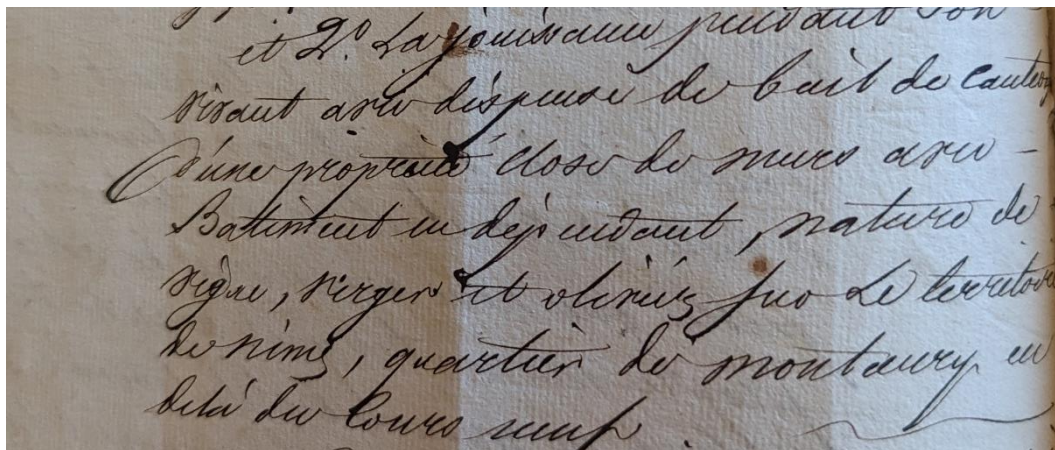 et 2.º La jouissance pendant son
vivant avec dispense de bail de caution
d'une propriété close de murs avec
Batiment en dépendant, nature de
vigne, verger et oliviers sur Le territoire
de nimes, quartier de montaury en
delà du Cours neuf.